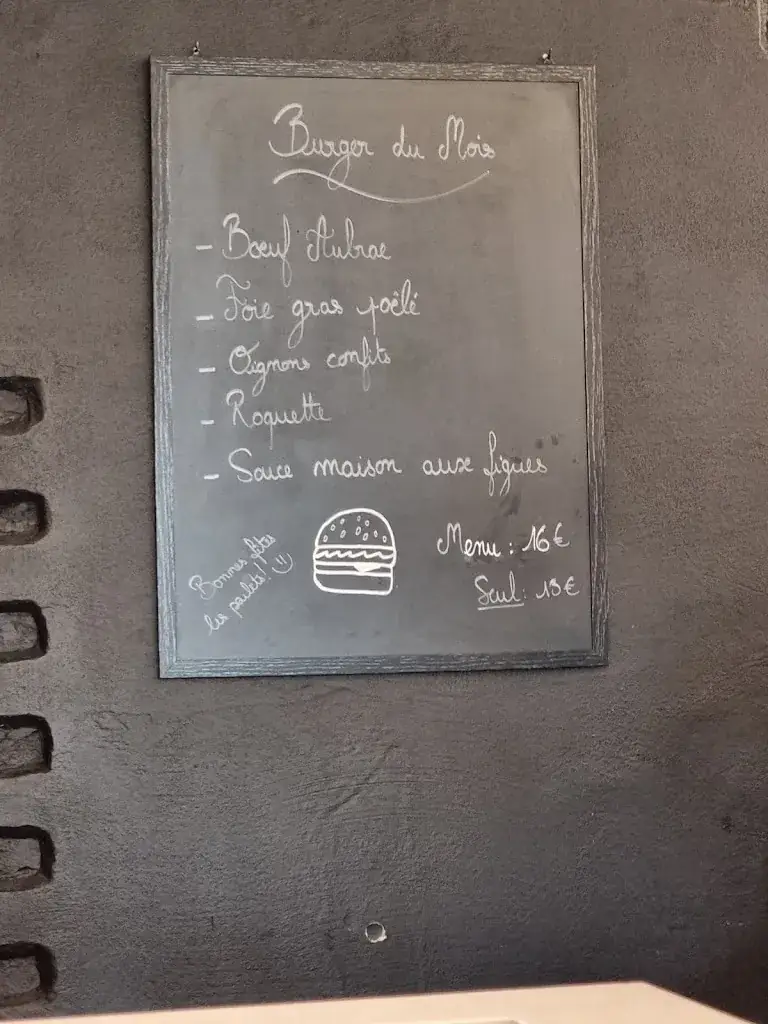 Burger du Mois
- Bœuf Aubrac
- Foie gras poêlé
- Oignons confits
- Roquette
- Sauce maison aux figues
Menu : 16€
Seul : 13€
Bonnes fêtes
les poulets! :)